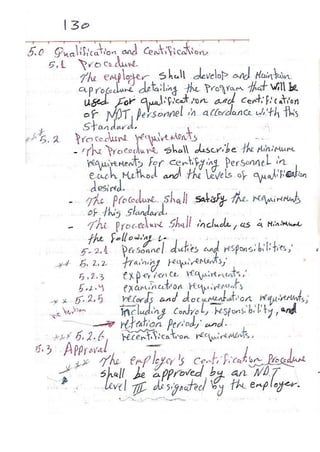 130
5.0 Qualification and Certification
5.1 Procedure
The employer shall develop and Maintain
a procedure detailing the Program that will be
used for qualification and certification
of NDT Personnel in accordance with this
Standard.
** 5.2 Procedure requirements
- The Procedure shall describe the Minimum
requirements for certifying Personnel in
each Method and the levels of qualification
desired.
- The procedure shall satisfy the requirements
of this Standard.
- The procedure shall include, as a Minimum
the following :-
5.2.1 Personnel duties and responsibilities;
** 5.2.2 training requirements;
5.2.3 experience requirements;
5.2.4 examination requirements
** 5.2.5 records and documentation requirements;
including control, responsibility, and
retention period; and.
** 5.2.6 recertification requirements.
5.3 Approval
*** The employer's certification Procedure
shall be approved by an NDT
level III designated by the employer.